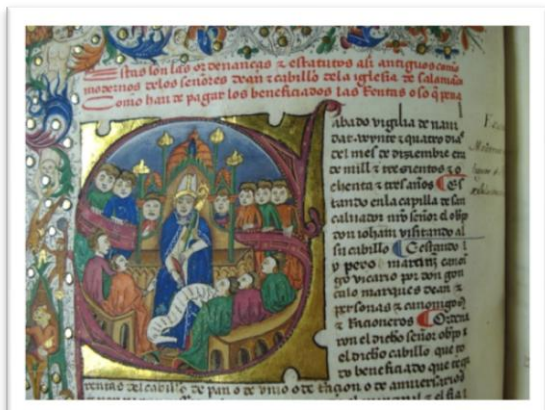 Estas son las ordenanças & estatutos asi antiguos como
modernos delos señores dean & cabillo dela iglesia de salamāca
Como han de pagar los beneficiados las Rentas o so q̄ pena
abado vigilia de naui
dat veynte & quatro dias
del mes de diziembre era
de mill & trezientos &
chenta & tres años Es
tando enla capilla de san
saluador nr̄o señor el obp̄o
don iohan visitando al
su cabillo E estando
y pero martin canoī
go vicario por don gon
çalo marques dean &
personas & canonigos
& Racioneros Ordena
ron el dicho señor obp̄o &
el dicho cabillo que to
do beneficiado que tega
Rentas del cabillo de pan o de vino o de Racion o de aniuersarios